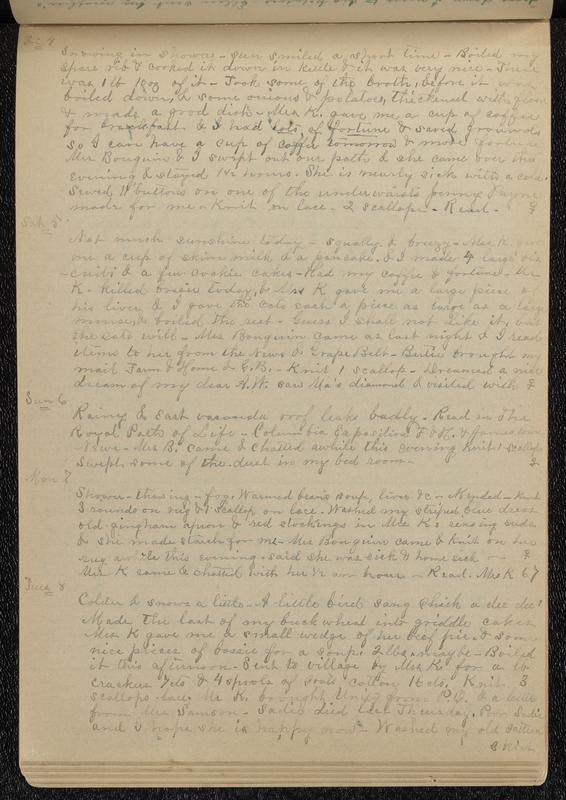 Fri 4
Snowing in showers - sun smiled a short time - Boiled my
spare rib & cooked it down in kettle & it was very nice - There
was 1 lb 10 oz of it - Took some of the broth, before it was
boiled down, & some onions & potatoes, thickened with flour
& made a good dish - Mrs K. gave me a cup of coffee
for breakfast & I had lots of fortune & saved grounds
so I can have a cup of coffee tomorrow & more fortune
Mrs Bouquin & I swept out our path & she came over this
evening & stayed 1½ hours. She is nearly sick with a cold.
Sewed 11 buttons on one of the underwaists Jenny Payne
made for me - Knit on lace - 2 scallops - Read -
Sat 5
Not much sunshine today - squally & breezy - Mrs K. gave
me a cup of skim milk & a pancake & I made 4 large bis
-cuits & a few cookie cakes - Had my coffee & fortune - Mr
K. killed bossie today, & Mrs K gave me a large piece of
his liver, & I gave the cats each a piece as large as a large
mouse, & boiled the rest - Guess I shall not like it, but
the cats will - Mrs Bouquin came as last night & I read
items to her from the News & Grape Belt - Bertie brought my
mail Farm & Home & G.B. - Knit 1 scallop - Dreamed a nice
dream of my dear A.W. saw Ma's diamond & visited with
Sun 6
Rainy & east varanda roof leaks badly - Read in The
Royal Path of Life - Columbia Exposition F & H. & Jamestown
- Mrs B. came & chatted awhile this evening Knit 1 scallop
Swept some of the dust in my bed room -
Mon 7
Shower - thawing - fog. Warmed bean soup, liver &c - Mended - Knit
3 rounds on rug & 1 scallop on lace. Washed my striped blue dress
old gingham apron & red stockings in Mrs K's rensing suds
& she made starch for me - Mrs Bouquin came & knit on her
rug awhile this evening - said she was sick & home sick -
Mrs K came & chatted with her ½ an hour - Read. Mrs K 67
Tues 8
Colder & snows a little - A little bird sang Chick a dee dee!
Made the last of my buckwheat into griddle cakes
Mrs K gave me a small wedge of her beef pie & some
nice pieces of bossie for a soup. 2 lbs maybe - Boiled
it this afternoon. Sent to village by Mrs K. for a lb
crackers 7cts & 4 spools of cotton 16 cts, Knit 3
scallops lace. Mr K. brought from P.O. & a letter
from Mrs Samson - Sadie died last Thursday. Poor Sadie
and I hope she is happy now - Washed my old